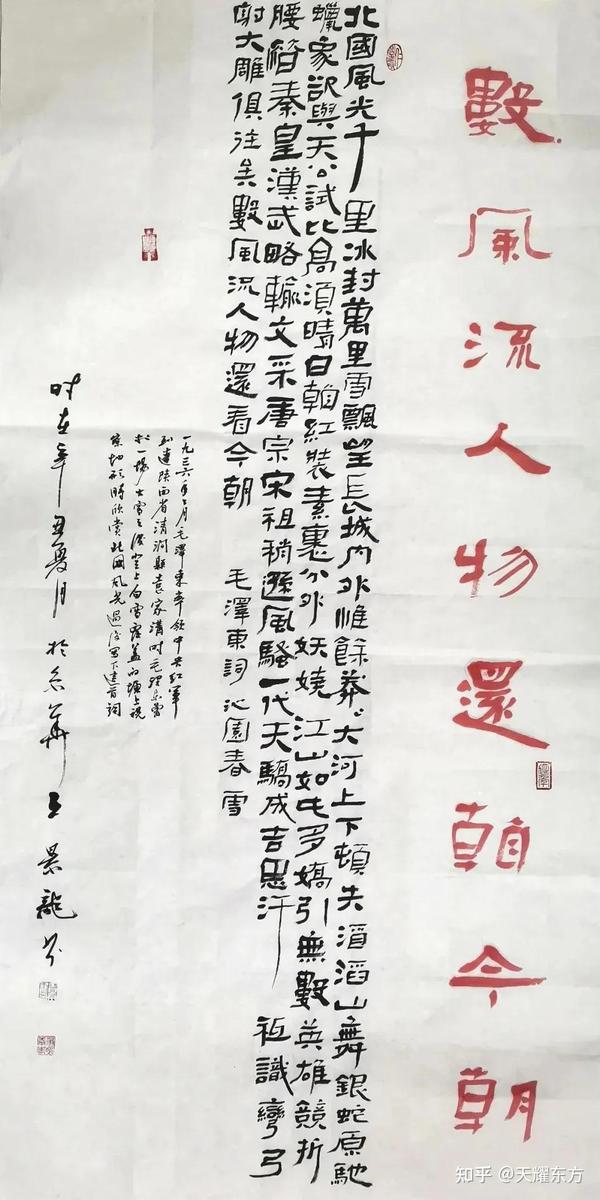 數風流人物還看今朝
北國風光千里冰封萬里雪飄望長城內外惟餘莽々大河上下頓失滔滔山舞銀蛇原馳
蠟象欲與天公試比高須晴日看紅裝素裹分外妖嬈江山如此多嬌引無數英雄競折
腰惜秦皇漢武略輸文采唐宗宋祖稍遜風騷一代天驕成吉思汗祗識彎弓
射大雕俱往矣數風流人物還看今朝 毛澤東詞沁園春雪
一九三六年二月毛澤東率領中央紅軍
到達陝西省清澗縣袁家溝时毛澤東曾
於一場大雪之後登上白雪覆蓋的塬上視
察地形時欣賞北國風光過後寫下這首詞
时在辛丑夏月於京華王景龍书
知乎 @天耀东方